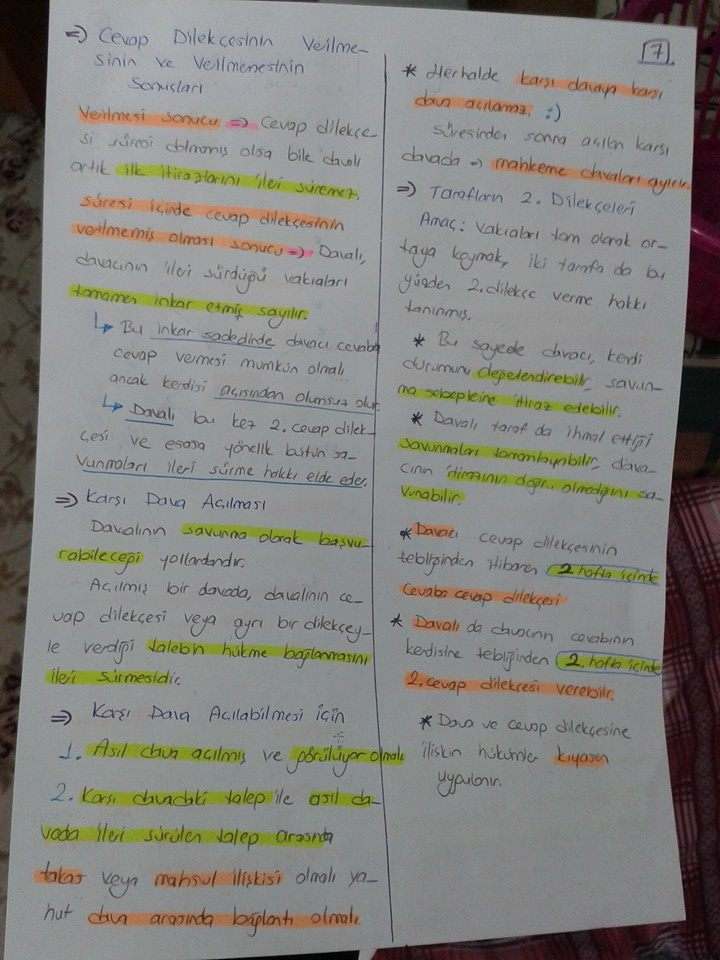 => Cevap Dilekçesinin Verilme-
sinin ve Verilmemesinin
Sonuçları
Verilmesi sonucu => Cevap dilekçe-
si süresi dolmamış olsa bile davalı
artık ilk itirazlarını ileri süremez.
Süresi içinde cevap dilekçesinin
verilmemiş olması sonucu => Davalı,
davacının ileri sürdüğü vakıaları
tamamen inkar etmiş sayılır.
↳ Bu inkar sadedinde davacı cevaba
cevap vermesi mümkün olmalı
ancak kendisi açısından olumsuz olur.
↳ Davalı bu kez 2. cevap dilek-
çesi ve esasa yönelik bütün sa-
vunmaları ileri sürme hakkı elde eder.
=> Karşı Dava Açılması
Davalının savunma olarak başvu-
rabileceği yollardandır.
Açılmış bir davada, davalının ce-
vap dilekçesi veya ayrı bir dilekçey-
le verdiği talebin hükme bağlanmasını
ileri sürmesidir.
=> Karşı Dava Açılabilmesi için
1. Asıl dava açılmış ve görülüyor olmalı
2. Karşı davadaki talep ile asıl da-
vada ileri sürülen talep arasında
takas veya mahsul ilişkisi olmalı ya-
hut dava arasında bağlantı olmalı.
7
* Herhalde karşı davaya karşı
dava açılamaz. :)
süresinden sonra açılan karşı
davada => mahkeme davaları ayırır.
=> Tarafların 2. Dilekçeleri
Amaç: Vakıaları tam olarak or-
taya koymak, iki tarafa da bu
yüzden 2. dilekçe verme hakkı
tanınmış.
* Bu sayede davacı, kendi
durumunu değerlendirebilir, savun-
ma sebeplerine itiraz edebilir.
* Davalı taraf da ihmal ettiği
savunmaları tamamlayabilir, dava-
cının itirazının doğru olmadığını sa-
vunabilir.
* Davacı cevap dilekçesinin
tebliğinden itibaren 2 hafta içinde
cevaba cevap dilekçesi
* Davalı da davacının cevabının
kendisine tebliğinden 2. hafta içinde
2. cevap dilekçesi verebilir.
* Dava ve cevap dilekçesine
ilişkin hükümler kıyasen
uygulanır.